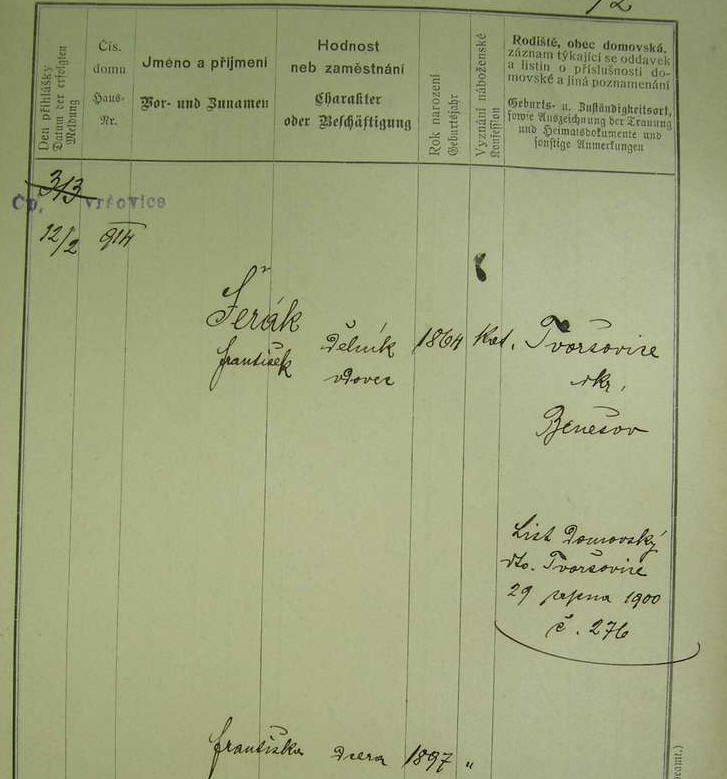 12
Den přihlášky
Datum der erfolgten
Meldung
Čís.
domu
Haus-
Nr.
Jméno a příjmení
Vor- und Zunamen
Hodnost
neb zaměstnání
Charakter
oder Beschäftigung
Rok narození
Geburtsjahr
Vyznání náboženské
Konfession
Rodiště, obec domovská,
záznam týkající se oddavek
a listin o příslušnosti do-
movské a jiná poznamenání
Geburts- u. Zuständigkeitsort,
sowie Auszeichnung der Trauung
und Heimatsdokumente und
sonstige Anmerkungen
3/3
Čp. Vršovice
12/2 914
Řerák
František
Dělník
vdovec
1864
Kat.
Tvoršovice
okr.
Benešov
List Domovský
dto. Tvoršovice
29 srpna 1900
č. 276
Františka dcera 1897 "